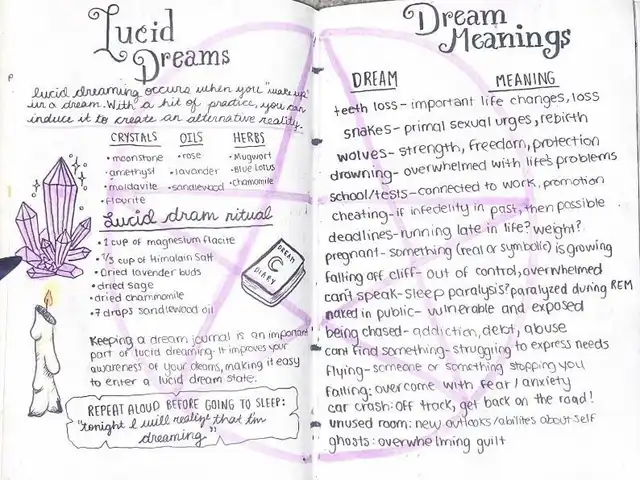 Lucid
Dreams
lucid dreaming occurs when you "wake up"
in a dream. With a bit of practice, you can
induce it to create an alternative reality.
CRYSTALS OILS HERBS
• moonstone • rose • Mugwort
• amethyst • lavander • Blue Lotus
• moldavite • sandlewood • Chamomile
• flourite
Lucid dram ritual
• 1 cup of magnesium flacite
• 1/3 cup of Himalain Salt
• Dried lavender buds
• dried sage
• dried chammomile
• 7 drops sandlewood oil
DREAM
DIARY
Keeping a dream journal is an important
part of lucid dreaming. It improves your
awareness of your dreams, making it easy
to enter a lucid dream state.
REPEAT ALOUD BEFORE GOING TO SLEEP:
"tonight I will realize that I'm
dreaming"
Dream
Meanings
DREAM MEANING
teeth loss - important life changes, loss
snakes - primal sexual urges, rebirth
wolves - strength, freedom, protection
drowning - overwhelmed with life's problems
school/tests - connected to work, promotion
cheating - if infedelity in past, then possible
deadlines - running late in life? weight?
pregnant - something (real or symbolic) is growing
falling off cliff - out of control, overwhelmed
can't speak - sleep paralysis? paralyzed during REM
naked in public - vulnerable and exposed
being chased - addiction, debt, abuse
cant find something - struggling to express needs
Flying - someone or something stopping you
Falling: overcome with fear/anxiety
car crash: off track, get back on the road!
unused room: new outlooks/abilites about self
ghosts: overwhelming guilt